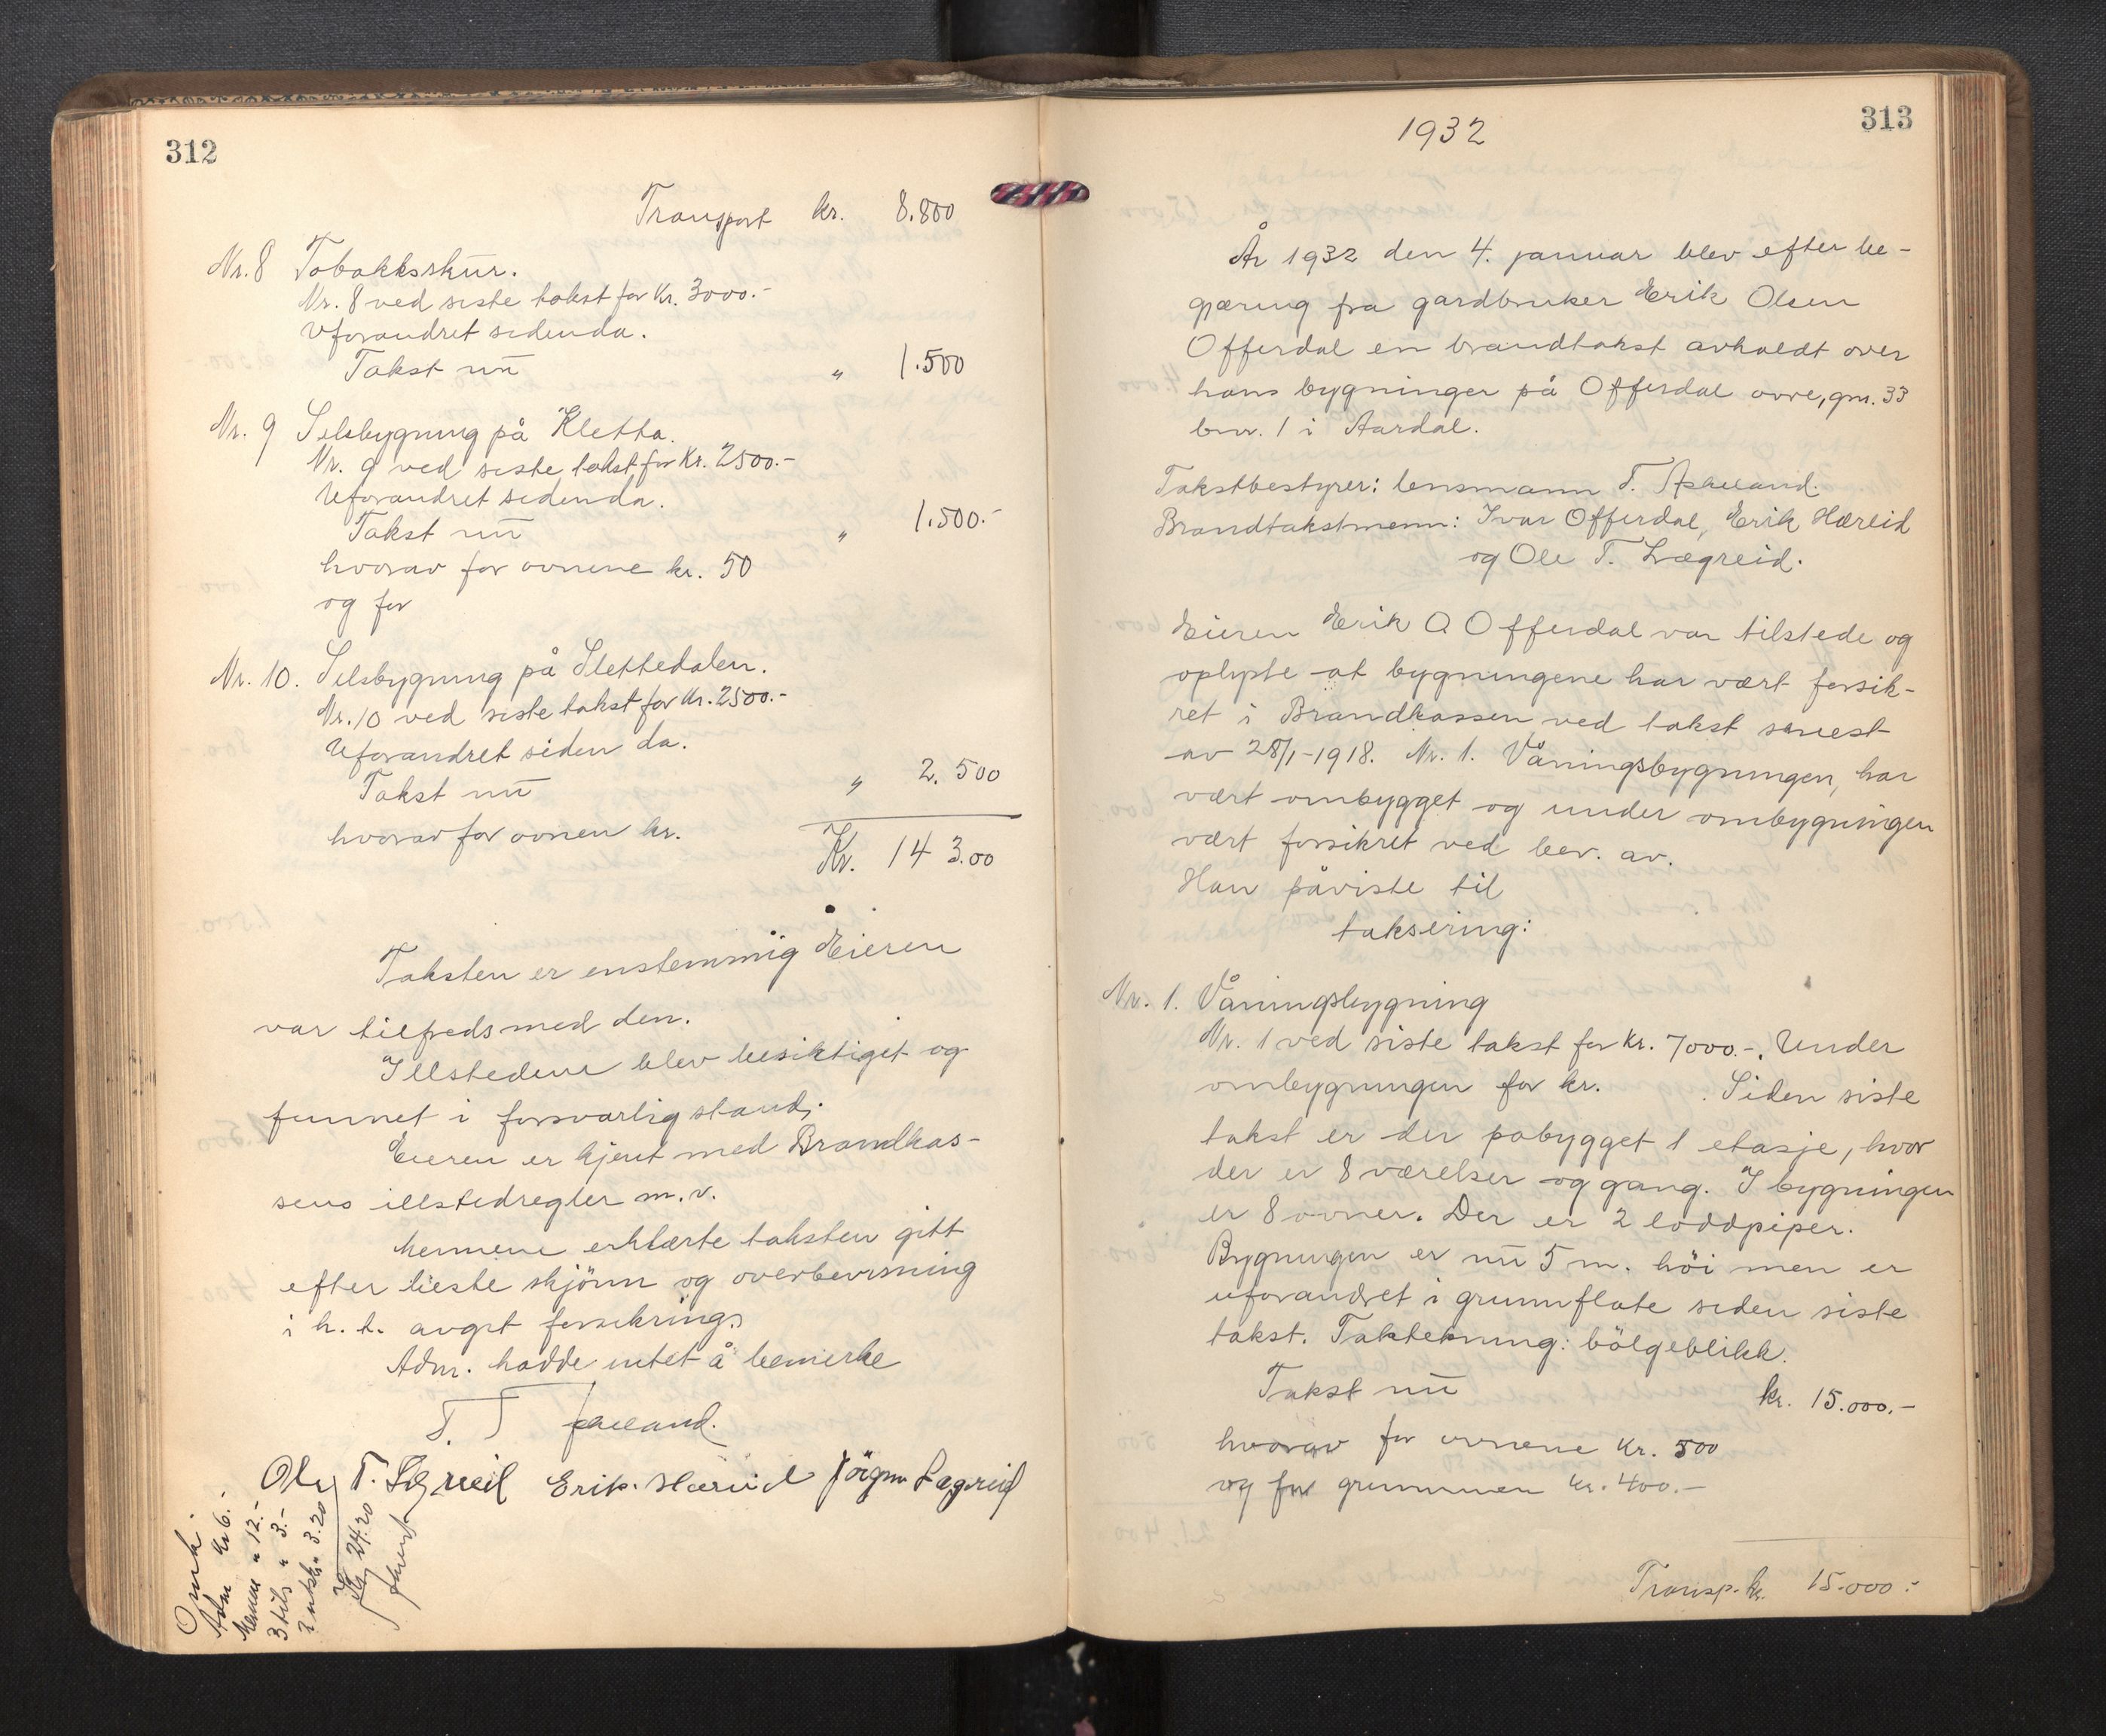 312
Transport kr. 8.800
Nr. 8 Tobakksskur.
Nr. 8 ved siste takst for Kr. 3000.-
Uforandret siden da.
Takst nu " 1.500
Nr. 9 Selsbygning på Kletta.
Nr. 9 ved siste takst for Kr. 2500.-
Uforandret siden da.
Takst nu " 1.500.-
hvorav for ovnene kr. 50
og for
Nr. 10. Selsbygning på Slettedalen.
Nr. 10 ved siste takst for Kr. 2500.-
Uforandret siden da.
Takst nu " 2.500
hvorav for ovnen kr.
Kr. 14 3.00
Taksten er enstemmig Eieren
var tilfreds med den.
Illstedene blev besiktiget og
funnet i forsvarlig stand.
Eieren er kjent med Brandkas-
sens illstedregler m.v.
Mennene erklærte taksten gitt
efter beste skjönn og overbevisning
i h. t. avgit forsikring.
Adm. hadde intet å bemerke
T.
Ole T. Lægreid Erik Hæreid Jörgen Lægreid
Omk.
Adm Kr 6.-
Mennene " 12.-
3 tils " 3.-
2 utskr. " 3.20
Kr 24.20
1932
313
År 1932 den 4. januar blev efter be-
gjæring fra gardbruker Erik Olsen
Offerdal en brandtakst avholdt over
hans bygninger på Offerdal övre, gnr. 33
bnr. 1 i Aardal.
Takstbestyrer: lensmann T.
Brandtakstmenn: Ivar Offerdal, Erik Hæreid
og Ole T. Lægreid.
Eieren Erik O Offerdal var tilstede og
oplyste at bygningene har vært forsik-
ret i Brandkassen ved takst senest
av 28/1-1918. Nr. 1. Våningsbygningen, har
vært ombygget og under ombygningen
vært forsikret ved bev. av.
Han påviste til
taksering:
Nr. 1. Våningsbygning
Nr. 1 ved siste takst for Kr. 7000.-. Under
ombygningen for kr. . Siden siste
takst er der påbygget 1 etasje, hvor
der er 8 værelser og gang. I bygningen
er 8 ovner. Der er 2 loddpiper.
Bygningen er nu 5 m. höi men er
uforandret i grunnflate siden siste
takst. Taktekning: bölgeblikk.
Takst nu kr. 15.000.-
hvorav for ovnene Kr. 500
og for grunnmuren Kr. 400.-
Transp. kr. 15.000.-